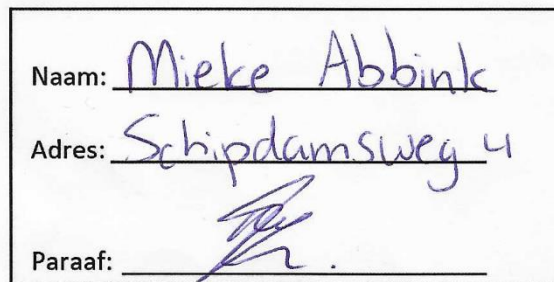 Naam: Mieke Abbink
Adres: Schipdamsweg 4
Paraaf: